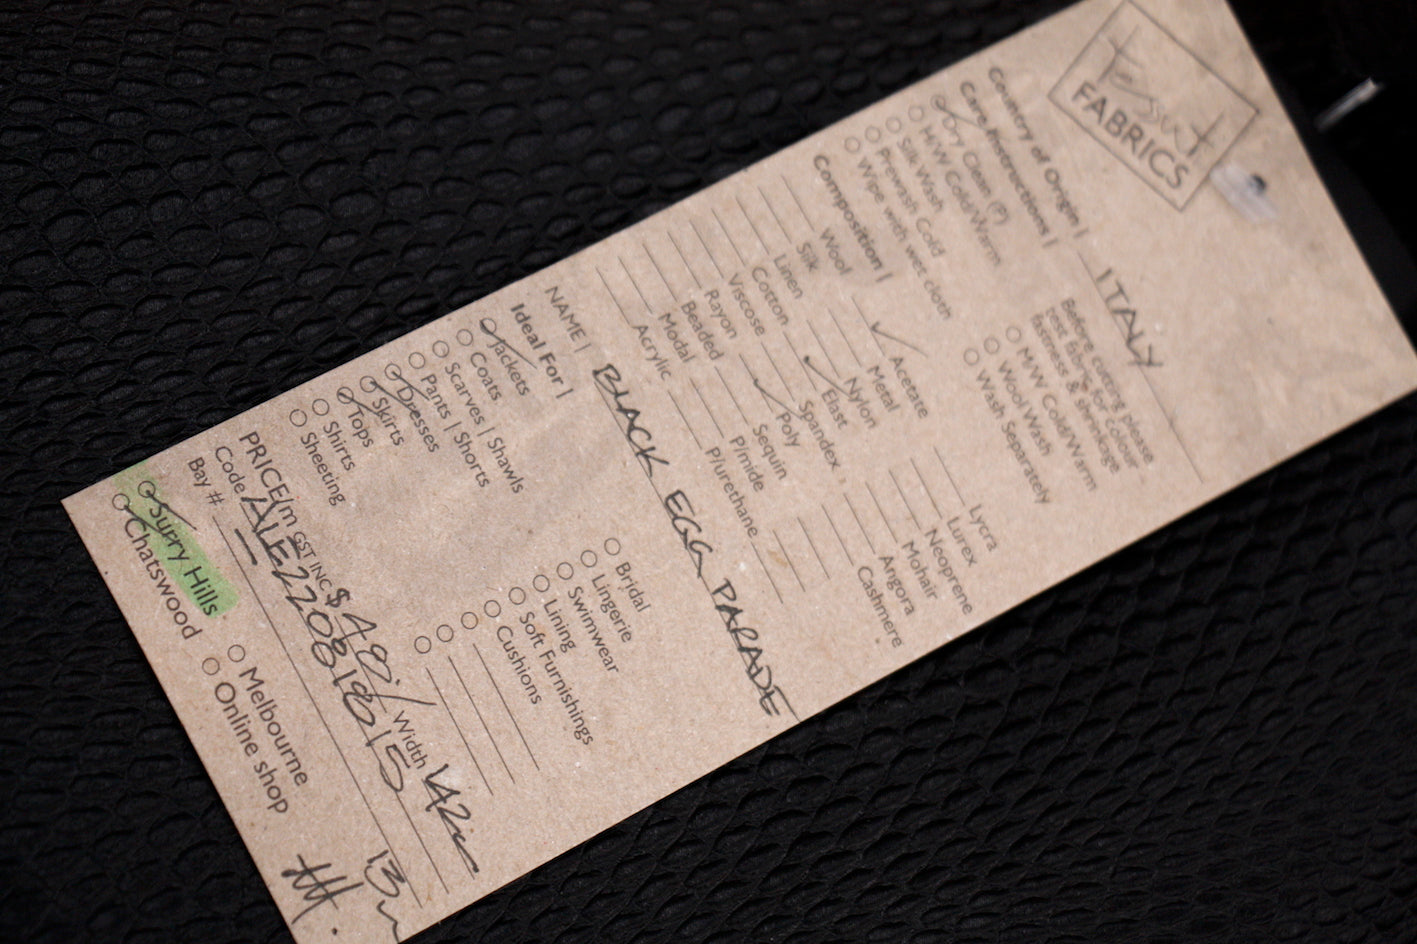 Tessuti
FABRICS
Country of Origin | ITALY
Care Instructions |
Dry Clean (P)
H/W Cold/Warm
Silk Wash
Prewash Cold
Wipe with wet cloth
Before cutting please
test fabric for colour
fastness & shrinkage
M/W Cold/Warm
Wool Wash
Wash Separately
Composition |
Wool Acetate Lycra
Silk Metal Lurex
Linen Nylon Neoprene
Cotton Elast Mohair
Viscose Spandex Angora
Rayon Poly Cashmere
Beaded Sequin
Modal P/mide
Acrylic P/urethane
NAME | BLACK EGG PARADE
Ideal For |
Jackets Bridal
Coats Lingerie
Scarves | Shawls Swimwear
Pants | Shorts Lining
Dresses Soft Furnishings
Skirts Cushions
Tops
Shirts
Sheeting
PRICE/m GST INC $49 / Width 142cm
Code
Bay #
Surry Hills Melbourne
Chatswood Online shop